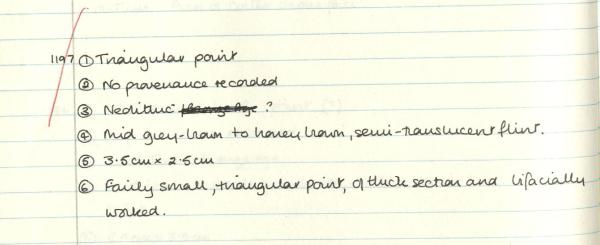 1197 ① Triangular point
② No provenance recorded
③ Neolithic Bronze Age ?
④ Mid grey-brown to honey brown, semi-translucent flint.
⑤ 3.5cm x 2.5cm
⑥ Fairly small, triangular point, of thick section and bifacially
worked.